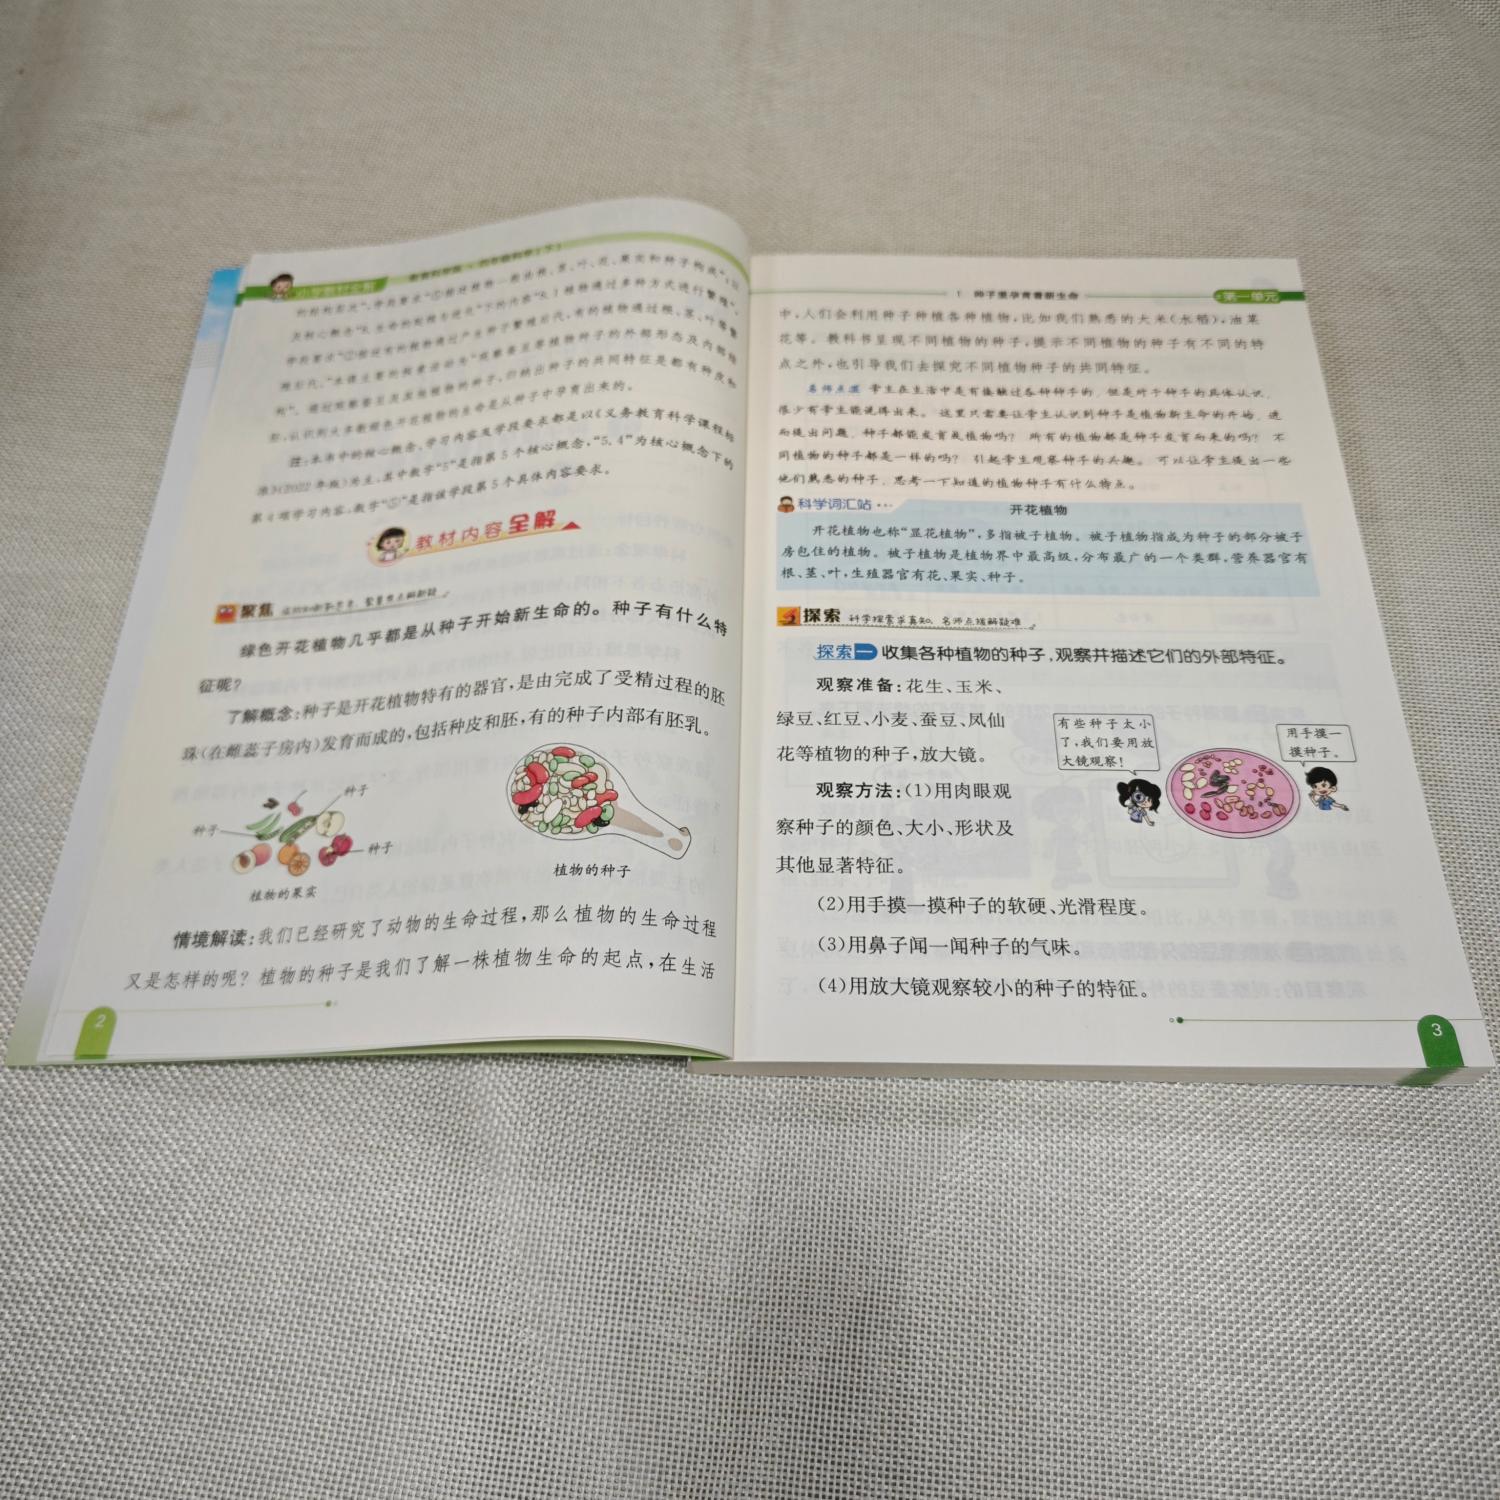 小学教材全解
的结构形式”,学段要求“⑤描述植物一般由根、茎、叶、花、果实和种子构成”;
注:本书中的核心概念、学习内容及学段要求都是以《义务教育科学课程标
准》(2022年版)为主,其中数字“5”是指第5个核心概念,“5.4”为核心概念下的
第4项学习内容,数字“⑤”是指该学段第5个具体内容要求。
教材内容全解
聚焦
绿色开花植物几乎都是从种子开始新生命的。种子有什么特
征呢?
了解概念:种子是开花植物特有的器官,是由完成了受精过程的胚
珠(在雌蕊子房内)发育而成的,包括种皮和胚,有的种子内部有胚乳。
种子
种子
种子
植物的果实
植物的种子
情境解读:我们已经研究了动物的生命过程,那么植物的生命过程
又是怎样的呢?植物的种子是我们了解一株植物生命的起点,在生活
2
1 种子里孕育着新生命
第一单元
中,人们会利用种子种植各种植物,比如我们熟悉的大米(水稻),油菜
花等。教科书呈现不同植物的种子,提示不同植物的种子有不同的特
点之外,也引导我们去探究不同植物种子的共同特征。
名师点拨 学生在生活中是有接触过各种种子的,但是对于种子的具体认识,
很少有学生能说得出来。这里只需要让学生认识到种子是植物新生命的开始,进
而提出问题,种子都能发育成植物吗?所有的植物都是种子发育而来的吗?不
同植物的种子都是一样的吗?引起学生观察种子的兴趣。可以让学生提出一些
他们熟悉的种子,思考一下知道的植物种子有什么特点。
科学词汇站
开花植物
开花植物也称“显花植物”,多指被子植物。被子植物指成为种子的部分被子
房包住的植物。被子植物是植物界中最高级,分布最广的一个类群,营养器官有
根、茎、叶,生殖器官有花、果实、种子。
探索 科学探索求真知,名师点拨解疑难
探索一 收集各种植物的种子,观察并描述它们的外部特征。
观察准备:花生、玉米、
绿豆、红豆、小麦、蚕豆、凤仙
花等植物的种子,放大镜。
观察方法:(1)用肉眼观
察种子的颜色、大小、形状及
其他显著特征。
有些种子太小
了,我们要用放
大镜观察!
用手摸一
摸种子。
(2)用手摸一摸种子的软硬、光滑程度。
(3)用鼻子闻一闻种子的气味。
(4)用放大镜观察较小的种子的特征。
3